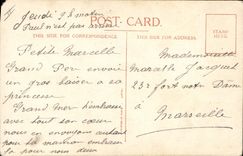 Jeudi 2 h matin
Paul n'est pas arrivé
POST CARD.
THIS SIDE FOR CORRESPONDENCE
THIS SIDE FOR ADDRESS
STAMP HERE
Petite Marcelle
Grand Per envoie
un gros baiser a sa
princesse
Grand Mer t'embrasse
avec tout son cœur
nous en envoyons autant
pour la maman embrasse
la pour nous deux
Mademoiselle
Jacquet
23 fort notre Dame
à
Marseille